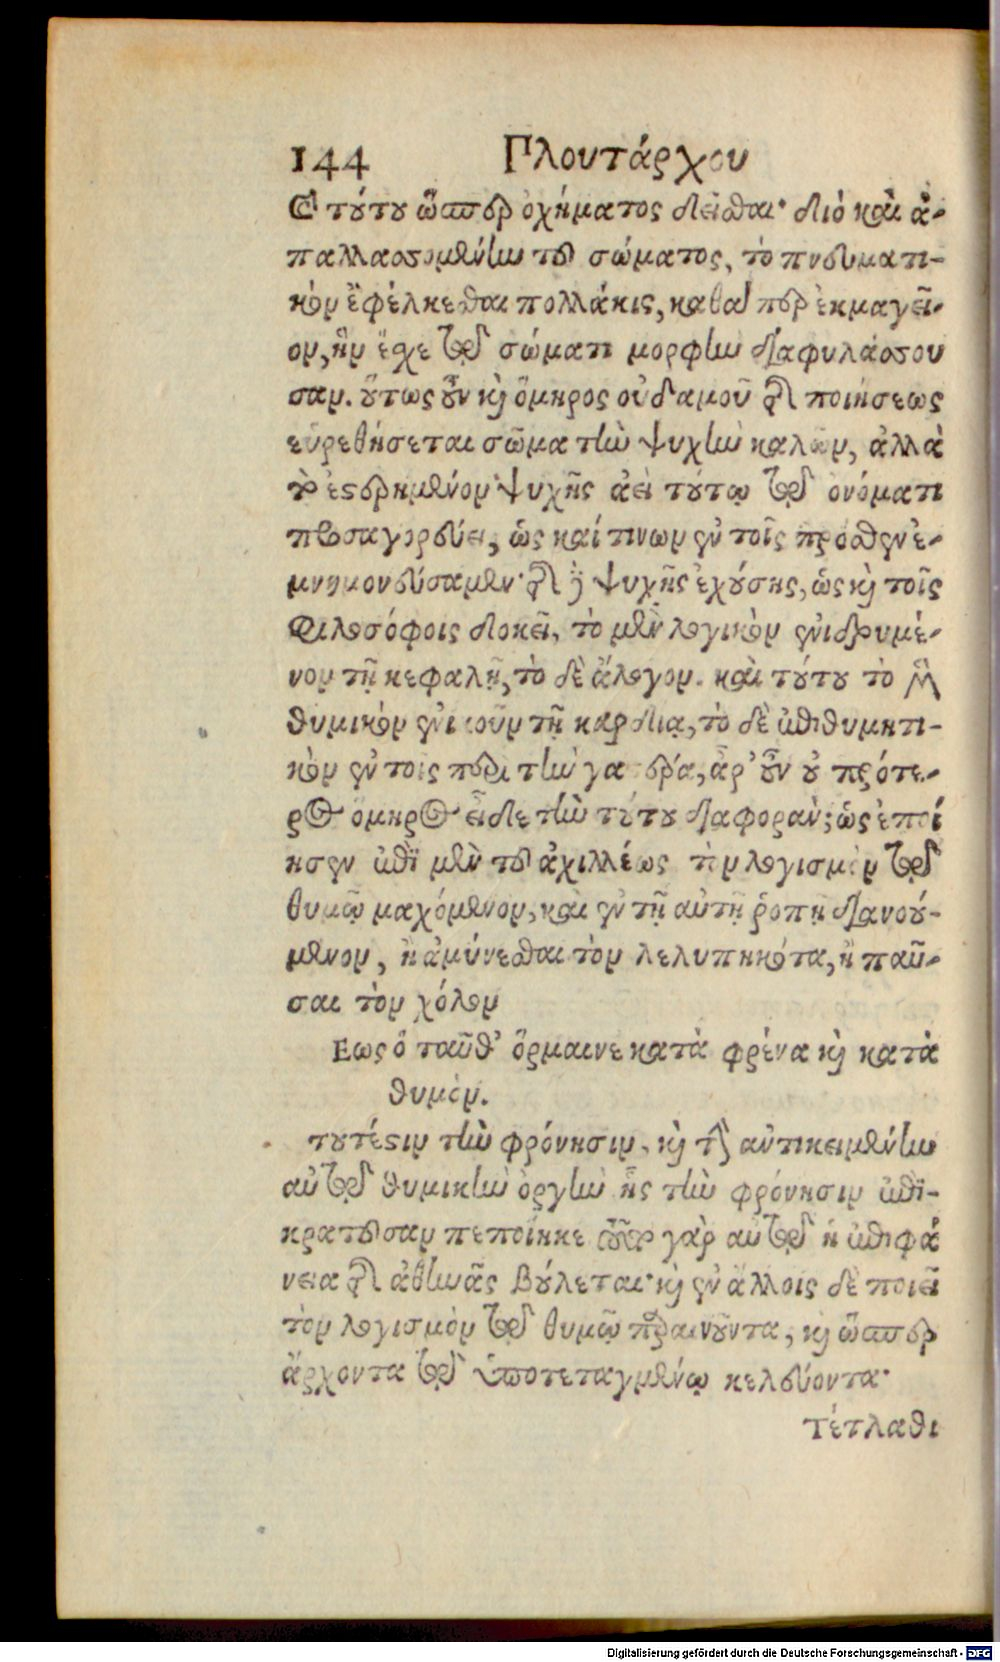 144 Πλουτάρχου
τούτου ὥσπερ ὀχήματος δεῖσθαι· διὸ καὶ ἀ-
παλλασσομένην τοῦ σώματος, τὸ πνευματι-
κὸν ἐφέλκεσθαι πολλάκις, καθάπερ ἐκμαγεῖ-
ον, ἣν ἔσχε τῷ σώματι μορφὴν διαφυλάσσου
σαν. οὕτως οὖν καὶ ὅμηρος οὐδαμοῦ τῆς ποιήσεως
εὑρεθήσεται σῶμα τὴν ψυχὴν καλῶν, ἀλλὰ
τὸ ἐστερημένον ψυχῆς ἀεὶ τούτῳ τῷ ὀνόματι
προσαγορεύει, ὡς καί τινων ἐν τοῖς πρόσθεν ἐ-
μνημονεύσαμεν· τῆς δὲ ψυχῆς ἐχούσης, ὡς καὶ τοῖς
φιλοσόφοις δοκεῖ, τὸ μὲν λογικὸν ἐνιδρυμέ-
νον τῇ κεφαλῇ, τὸ δὲ ἄλογον. καὶ τούτου τὸ μὲν
θυμικὸν ἐνοικοῦν τῇ καρδίᾳ, τὸ δὲ ἐπιθυμητι-
κὸν ἐν τοῖς περὶ τὴν γαστέρα, ἆρ' οὖν οὐ πρότε-
ρος ὅμηρος εἶδε τὴν τούτου διαφοράν; ὡς ἐποί
ησεν ἐπὶ μὲν τοῦ ἀχιλλέως τὸν λογισμὸν τῷ
θυμῷ μαχόμενον, καὶ ἐν τῇ αὐτῇ ῥοπῇ διανοού-
μενον, ἢ ἀμύνεσθαι τὸν λελυπηκότα, ἢ παῦ-
σαι τὸν χόλον
Εως ὁ ταῦθ' ὅρμαινε κατὰ φρένα καὶ κατὰ
θυμόν.
τουτέστιν τὴν φρόνησιν, καὶ τὴν ἀντικειμένην
αὐτῷ θυμικὴν ὀργὴν ἧς τὴν φρόνησιν ἐπι-
κρατοῦσαν πεποίηκε γὰρ αὐτῷ ἡ ἐπιφά
νεια τῆς ἀθηνᾶς βούλεται· καὶ ἐν ἄλλοις δὲ ποιεῖ
τὸν λογισμὸν τῷ θυμῷ παραινοῦντα, καὶ ὥσπερ
ἄρχοντα τῷ ὑποτεταγμένῳ κελεύοντα·
Τέτλαθι
Digitalisierung gefördert durch die Deutsche Forschungsgemeinschaft - DFG